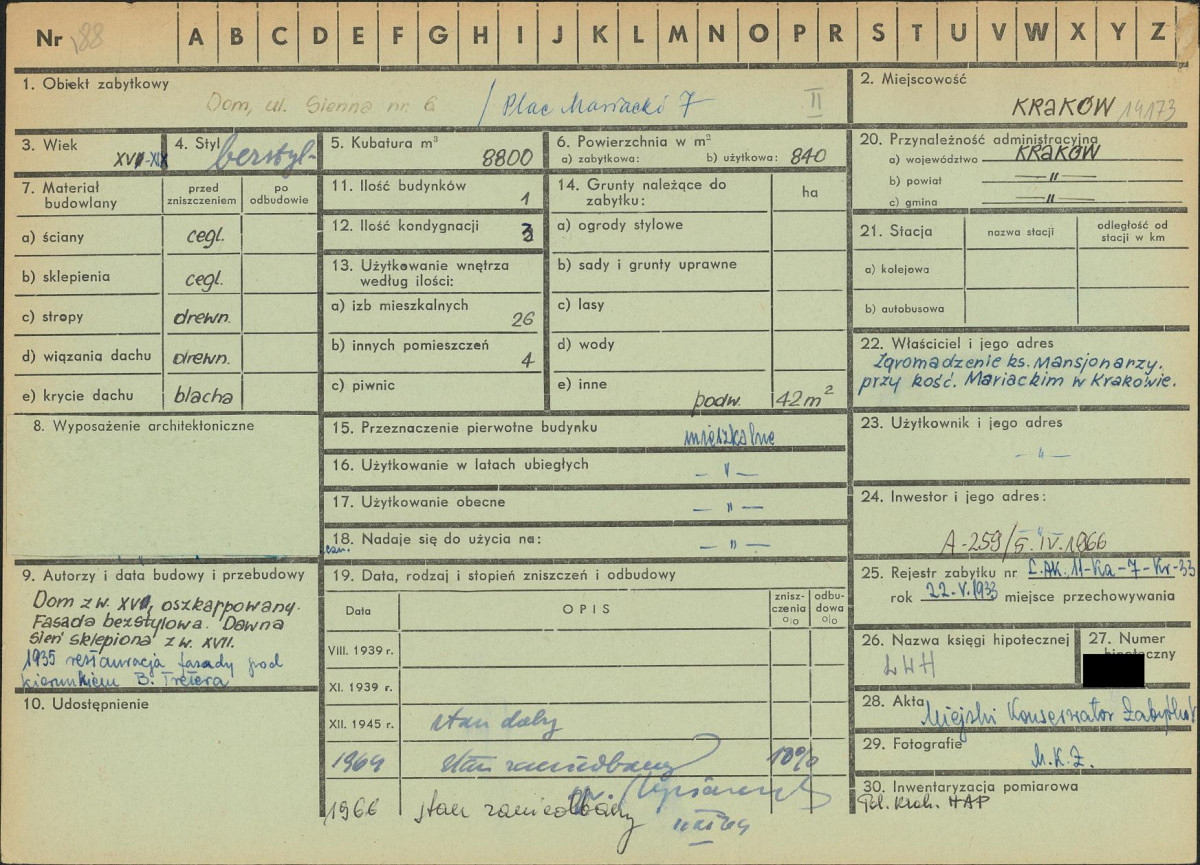 Nr 188 A B C D E F G H I J K L M N O P R S T U V W X Y Z
1. Obiekt zabytkowy
Dom, ul. Sienna nr 6 / Plac Mariacki 7 II
2. Miejscowość
KRAKÓW
3. Wiek
XVI-XIX
4. Styl
bezstyl-
5. Kubatura m³
8800
6. Powierzchnia w m²
a) zabytkowa: b) użytkowa: 840
7. Materiał budowlany
przed zniszczeniem
po odbudowie
a) ściany cegl.
b) sklepienia cegl.
c) stropy drewn.
d) wiązania dachu drewn.
e) krycie dachu blacha
8. Wyposażenie architektoniczne
9. Autorzy i data budowy i przebudowy
Dom z w. XVI, oszkarpowany.
Fasada bezstylowa. Dawna
sień sklepiona z w. XVII.
1935 restauracja fasady pod
kierunkiem B. Tretera
10. Udostępnienie
11. Ilość budynków
1
12. Ilość kondygnacji
3
13. Użytkowanie wnętrza
według ilości:
a) izb mieszkalnych
26
b) innych pomieszczeń
4
c) piwnic
14. Grunty należące do
zabytku:
ha
a) ogrody stylowe
b) sady i grunty uprawne
c) lasy
d) wody
e) inne
podw. 42 m²
15. Przeznaczenie pierwotne budynku mieszkalne
16. Użytkowanie w latach ubiegłych — " —
17. Użytkowanie obecne — " —
18. Nadaje się do użycia na: — " —
19. Data, rodzaj i stopień zniszczeń i odbudowy
Data
OPIS
znisz-
czenia
o|o
odbu-
dowa
o|o
VIII. 1939 r.
XI. 1939 r.
XII. 1945 r. stan dobry
1964 stan zaniedbany 10%
1966 stan zaniedbany
20. Przynależność administracyjna
a) województwo KRAKÓW
b) powiat — " —
c) gmina — " —
21. Stacja
nazwa stacji
odległość od
stacji w km
a) kolejowa
b) autobusowa
22. Właściciel i jego adres
Zgromadzenie ks. Mansjonarzy.
przy kość. Mariackim w Krakowie.
23. Użytkownik i jego adres
— " —
24. Inwestor i jego adres:
A-259/5.IV.1966
25. Rejestr zabytku nr L.AK.11-Ka-7-Kr-33
rok 22-V.1933 miejsce przechowywania
26. Nazwa księgi hipotecznej
LWH
27. Numer
hipoteczny
28. Akta
Miejski Konserwator Zabytków
29. Fotografie
M.K.Z.
30. Inwentaryzacja pomiarowa
Pol. Krak. HAP